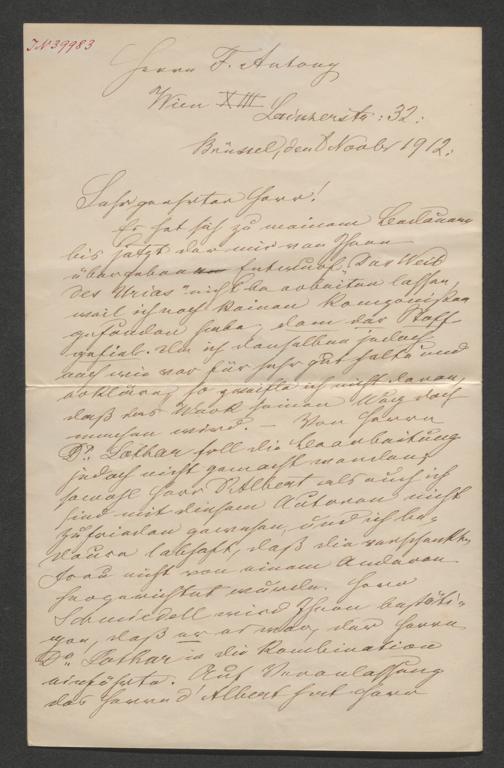 IN 39983
Herrn F. Antony
Wien XIII Lainzerstr: 32:
Brüssel, den 8 Novbr 1912:
Sehr geehrter Herr!
Es hat sich zu meinem Bedauern
bis jetzt der mir von Ihnen
übergebene Entwurf "Das Weib
des Urias" nicht bearbeiten lassen,
weil ich noch keinen Komponisten
gefunden habe, dem der Stoff
gefiel. Da ich denselben jedoch
nach wie vor für sehr gut halte und
erkläre, so zweifle ich nicht daran,
daß das Werk seinen Weg noch
machen wird. – Von Herrn
Dr. Lothar soll die Bearbeitung
jedoch nicht gemacht werden,
sowohl Herr d'Albert als auch ich
sind mit diesem Autoren nicht
zufrieden gewesen, und ich be-
daure lebhaft, daß die verschenkte
Frau nicht von einem Anderen
hergerichtet wurde. Herr
Schmiedell wird Ihnen bestäti-
gen, daß er es war, der Herrn
Dr. Lothar in die Kombination
einführte. Auf Veranlassung
des Herrn d'Albert hat Herr